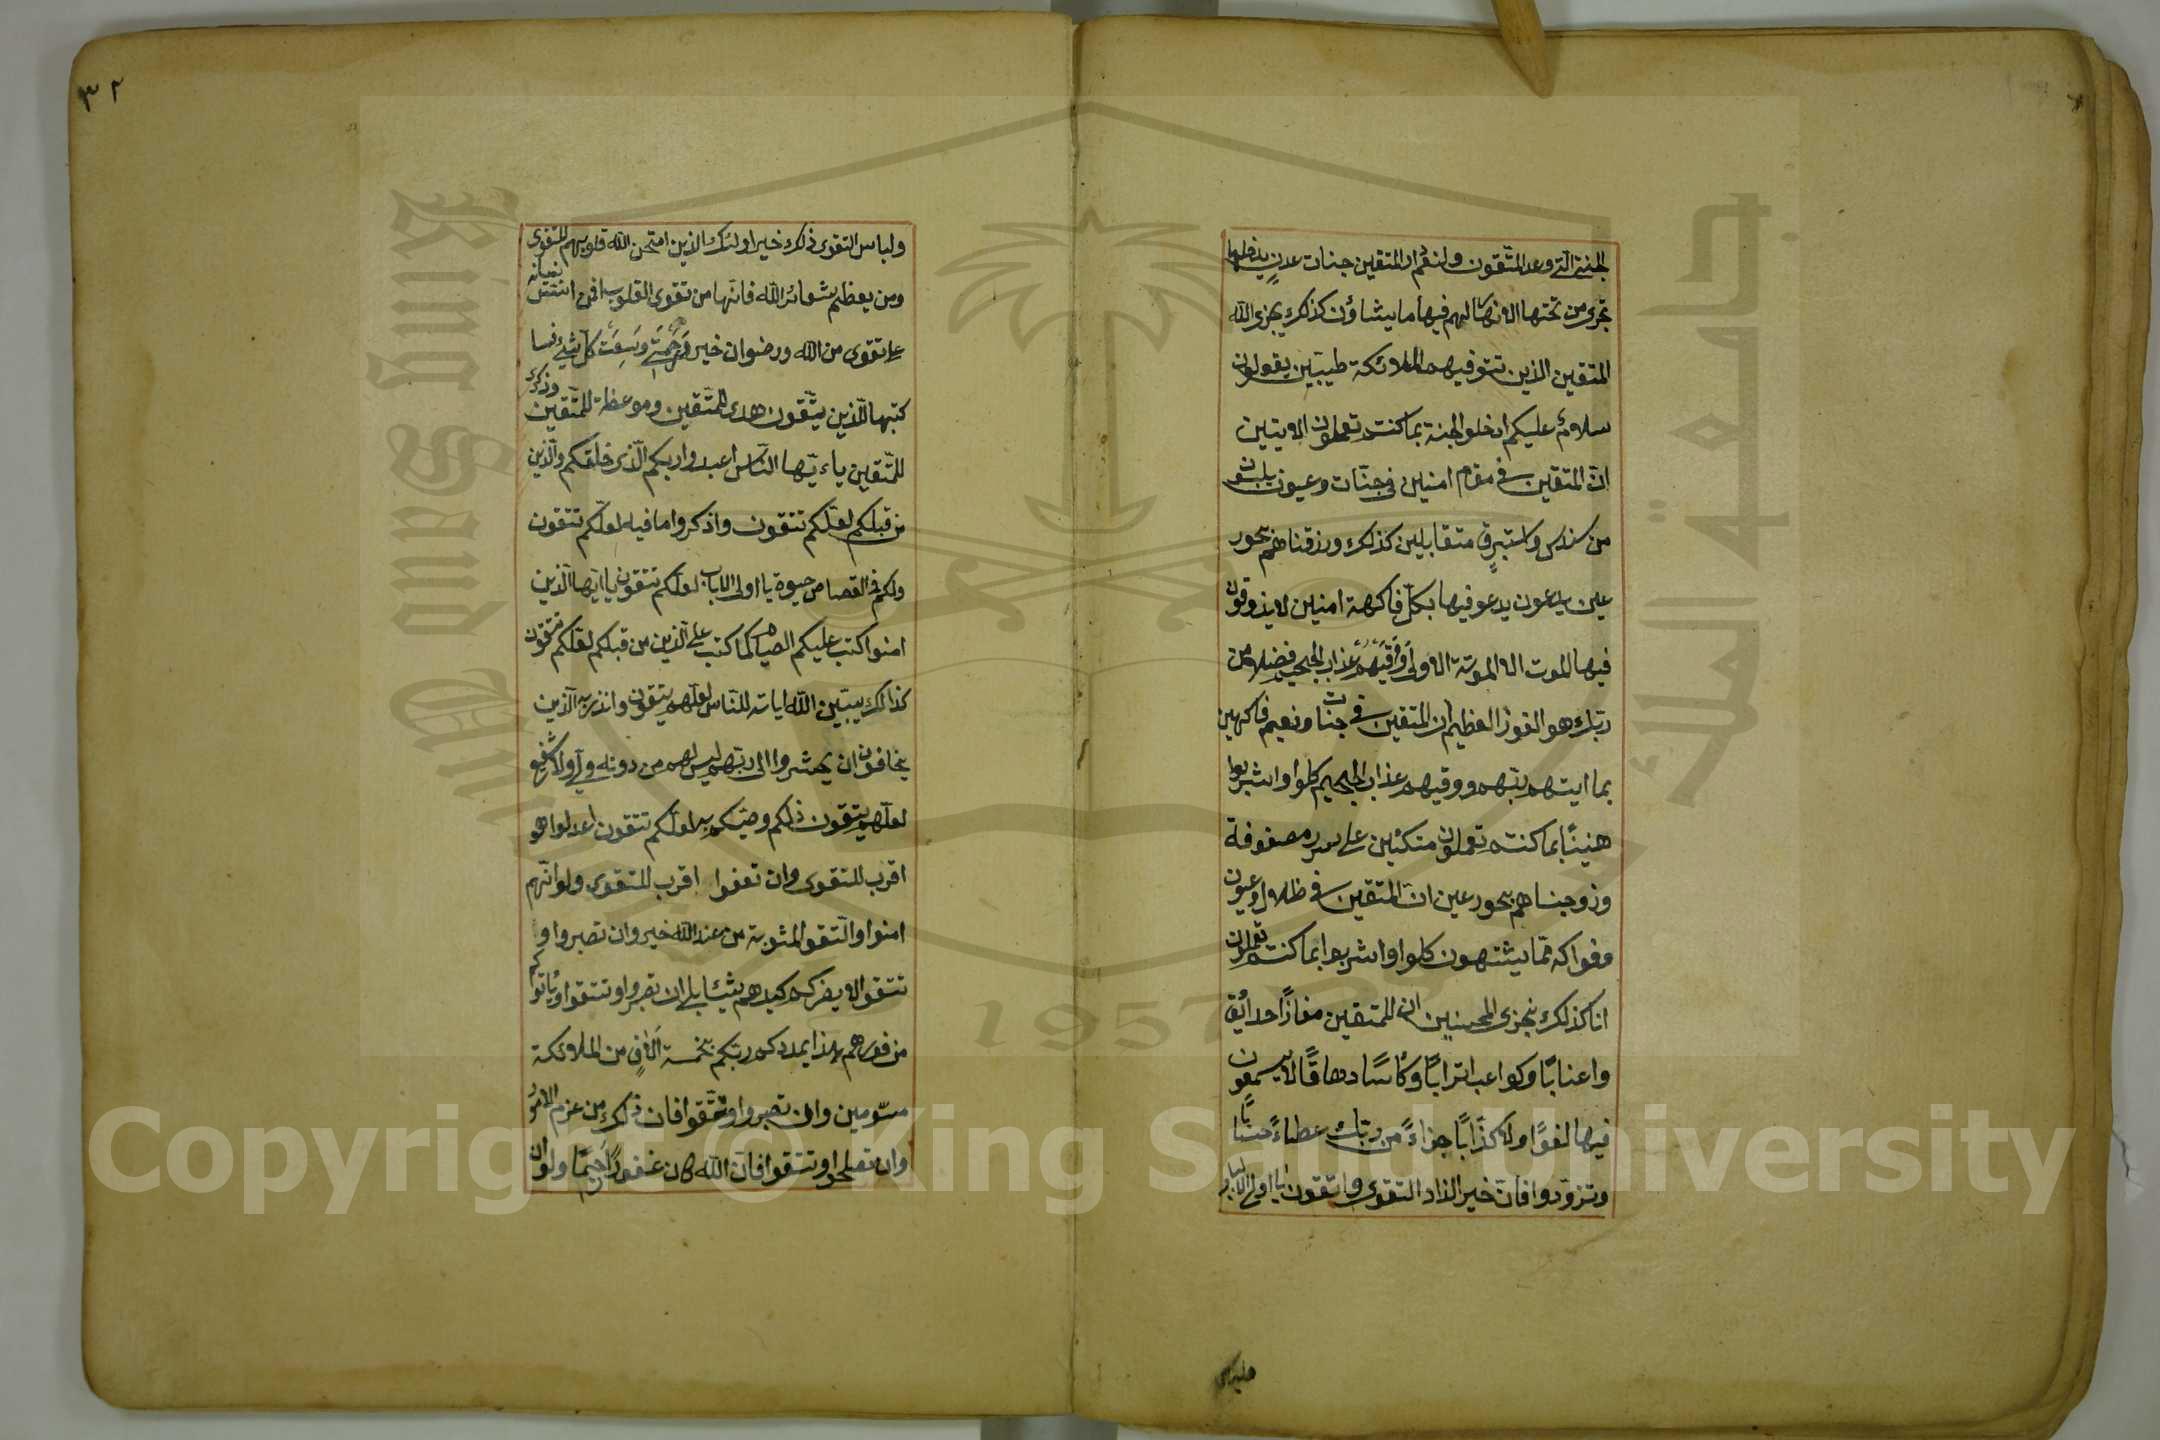 الجنة التي وعد المتقون ولنعم دار المتقين جنات عدن يدخلونها
تجرى من تحتها الانهار لهم فيها ما يشاؤن كذلك يجزى الله
المتقين الذين تتوفيهم الملائكة طيبين يقولون
سلامٌ عليكم ادخلوا الجنة بما كنتم تعملون الايتين
انّ المتقين في مقام امنين في جنّات وعيون يلبسون
من سندس واستبرقٍ متقابلين كذلك وزقناهم بحور
عين يدعون يدعو فيها بكلّ فاكهة امنين لا يذوقون
فيها الموت الا الموتة الاولى ووقيهم عذاب الجحيم فضلا من
ربّك هو الفوز العظيم ان المتقين في جنّات ونعيم فاكهين
بما اتيهم ربّهم ووقيهم عذاب الجحيم كلوا واشربوا
هنيئًا بما كنتم تعملون متكئين على سرر مصفوفة
وزوجناهم بحور عين انّ المتقين في ظلال وعيون
وفواكه ممّا يشتهون كلوا واشربوا بما كنتم تعملون
انا كذلك نجزى المحسنين ان للمتقين مفازًا حدائق
واعنابًا وكواعب اترابًا وكأسًا دهاقًا لا يسمعون
فيها لغوًا ولا كذّابًا جزاءً من ربّك عطاءً حسابًا
وتزوّدوا فانّ خير الزاد التقوى واتقون يا اولى الالباب
٣٢
ولباس التقوى ذلك خير اولئك الذين امتحن الله قلوبهم للتقوى
ومن يعظم شعائر الله فانّها من تقوى القلوب افمن اسّس بنيانه
على تقوى من الله ورضوان خير ورحمتي وسعت كلّ شئ فسا
كتبها للّذين يتّقون هدى للمتّقين وموعظة للمتّقين وذكرى
للمتّقين ياءيّها النّاس اعبدوا ربكم الّذى خلقكم والّذين
من قبلكم لعلّكم تتقون واذكروا ما فيه لعلّكم تتقون
ولكم في القصاص حيوة يا اولى الالباب لعلّكم تتقون يا ايّها الّذين
امنوا كتب عليكم الصيام كما كتب على الّذين من قبلكم لعلّكم تتقون
كذالك يبيّن الله اياته للنّاس لعلّهم يتّقون وانذر به الّذين
يخافون ان يحشروا الى ربّهم ليس لهم من دونه ولىّ ولا شفيع
لعلّهم يتّقون ذلكم وصّيكم به لعلّكم تتقون اعدلوا هو
اقرب للتقوى وان تعفوا اقرب للتقوى ولو انّهم
امنوا واتّقو المثوبة من عند الله خير وان تصبروا و
تتقوا لا يضركم كيدهم شيئا بلى ان تصبروا وتتقوا ويأتوكم
من فورهم هذا يمددكم ربّكم بخمسة الاف من الملائكة
مسوّمين وان تصبروا وتتّقوا فان ذلك من عزم الامور
وان تصلحوا وتتقوا فانّ الله كان غفورًا رحيمًا ولو ان